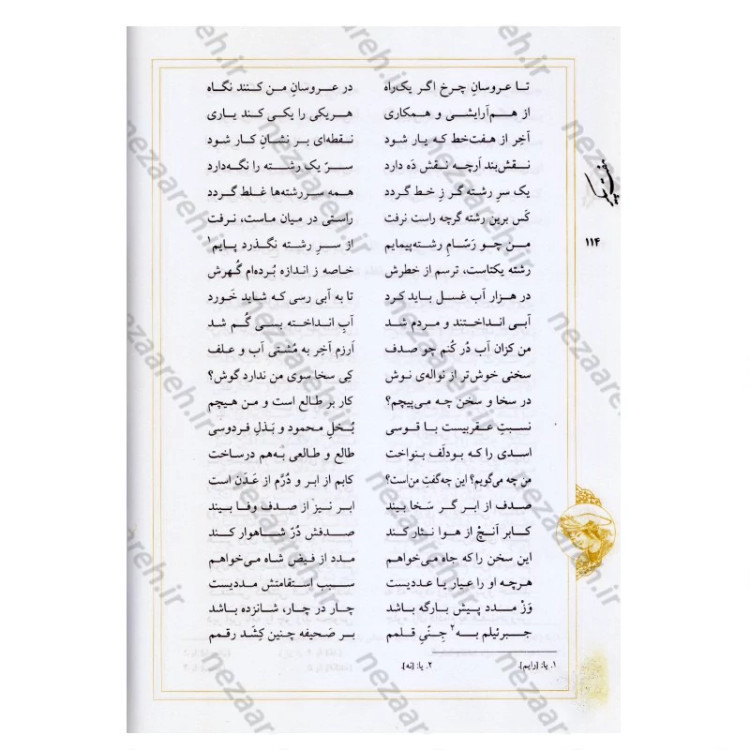 تا عروسانِ چرخ اگر یک‌راه	در عروسانِ من کنند نگاه
از هم‌آرایشی و همکاری	هریکی را یکی کند یاری
آخِر از هفت‌خط که یار شود	نقطه‌ای بر نشانِ کار شود
نقش‌بند ارچه نقش دَه دارد	سرّ یک رشته را نگه‌دارد
یک سرِ رشته گر ز خط گردد	همه سررشته‌ها غلط گردد
کَس برین رشته گرچه راست نرفت	راستی در میان ماست، نرفت
من چو رَسّامِ رشته‌پیمایم	از سرِ رشته نگذرد پایم۱
رشته یکتاست، ترسم از خطرش	خاصه ز اندازه بُرده‌ام گُهرش
در هزار آب غسل باید کرد	تا به آبی رسی که شاید خَورد
آبی انداختند و مردم شد	آبِ انداخته بسی گُم شد
من کزان آب دُر کُنم چو صدف	ارزم آخِر به مُشتی آب و علف
سخنی خوش‌تر از نواله‌ی نوش	کِی سخا سوی من ندارد گوش؟
در سخا و سخن چه می‌پیچم؟	کار بر طالع است و من هیچم
نسبتِ عقربیست با قوسی	بُخلِ محمود و بَذلِ فردوسی
اسدی را که بودلَف بنواخت	طالع و طالعی به‌هم درساخت
من چه می‌گویم؟ این چه‌گفتِ من‌است؟	کابم از ابر و دُرّم از عَدَن است
صدف از ابر گر سَخا بیند	ابر نیز از صدف وفا بیند
کابر آنچْ از هوا نثار کند	صدفش دُرّ شاهوار کند
این سخن را که جاه می‌خواهم	مدد از فیض شاه می‌خواهم
هرچه او را عیار یا عددیست	سبب استقامتش مددیست
وَزْ مدد پیش بارگه باشد	چار در چار، شانزده باشد
جبرئیلم به۲ جِنّیِ قلمم	بر صحیفه چنین کِشَد رقمم
۱۱۴
۱. پا: [رایم].	۲. پا: [نه].
nezaareh.ir